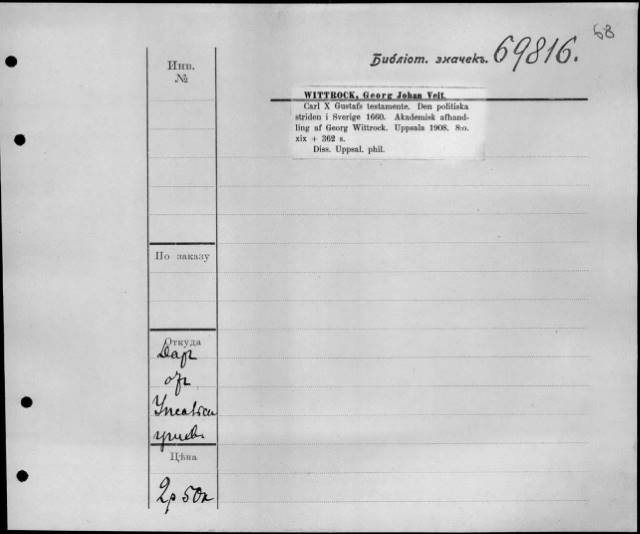 68
Библіот. значекъ. 69816.
Инв.
№
WITTROCK, Georg Johan Veit.
Carl X Gustafs testamente. Den politiska
striden i Sverige 1660. Akademisk afhand-
ling af Georg Wittrock. Uppsala 1908. 8:o.
xix + 362 s.
Diss. Uppsal. phil.
По заказу
Откуда
Даръ
отъ
Цѣна
2р 50к